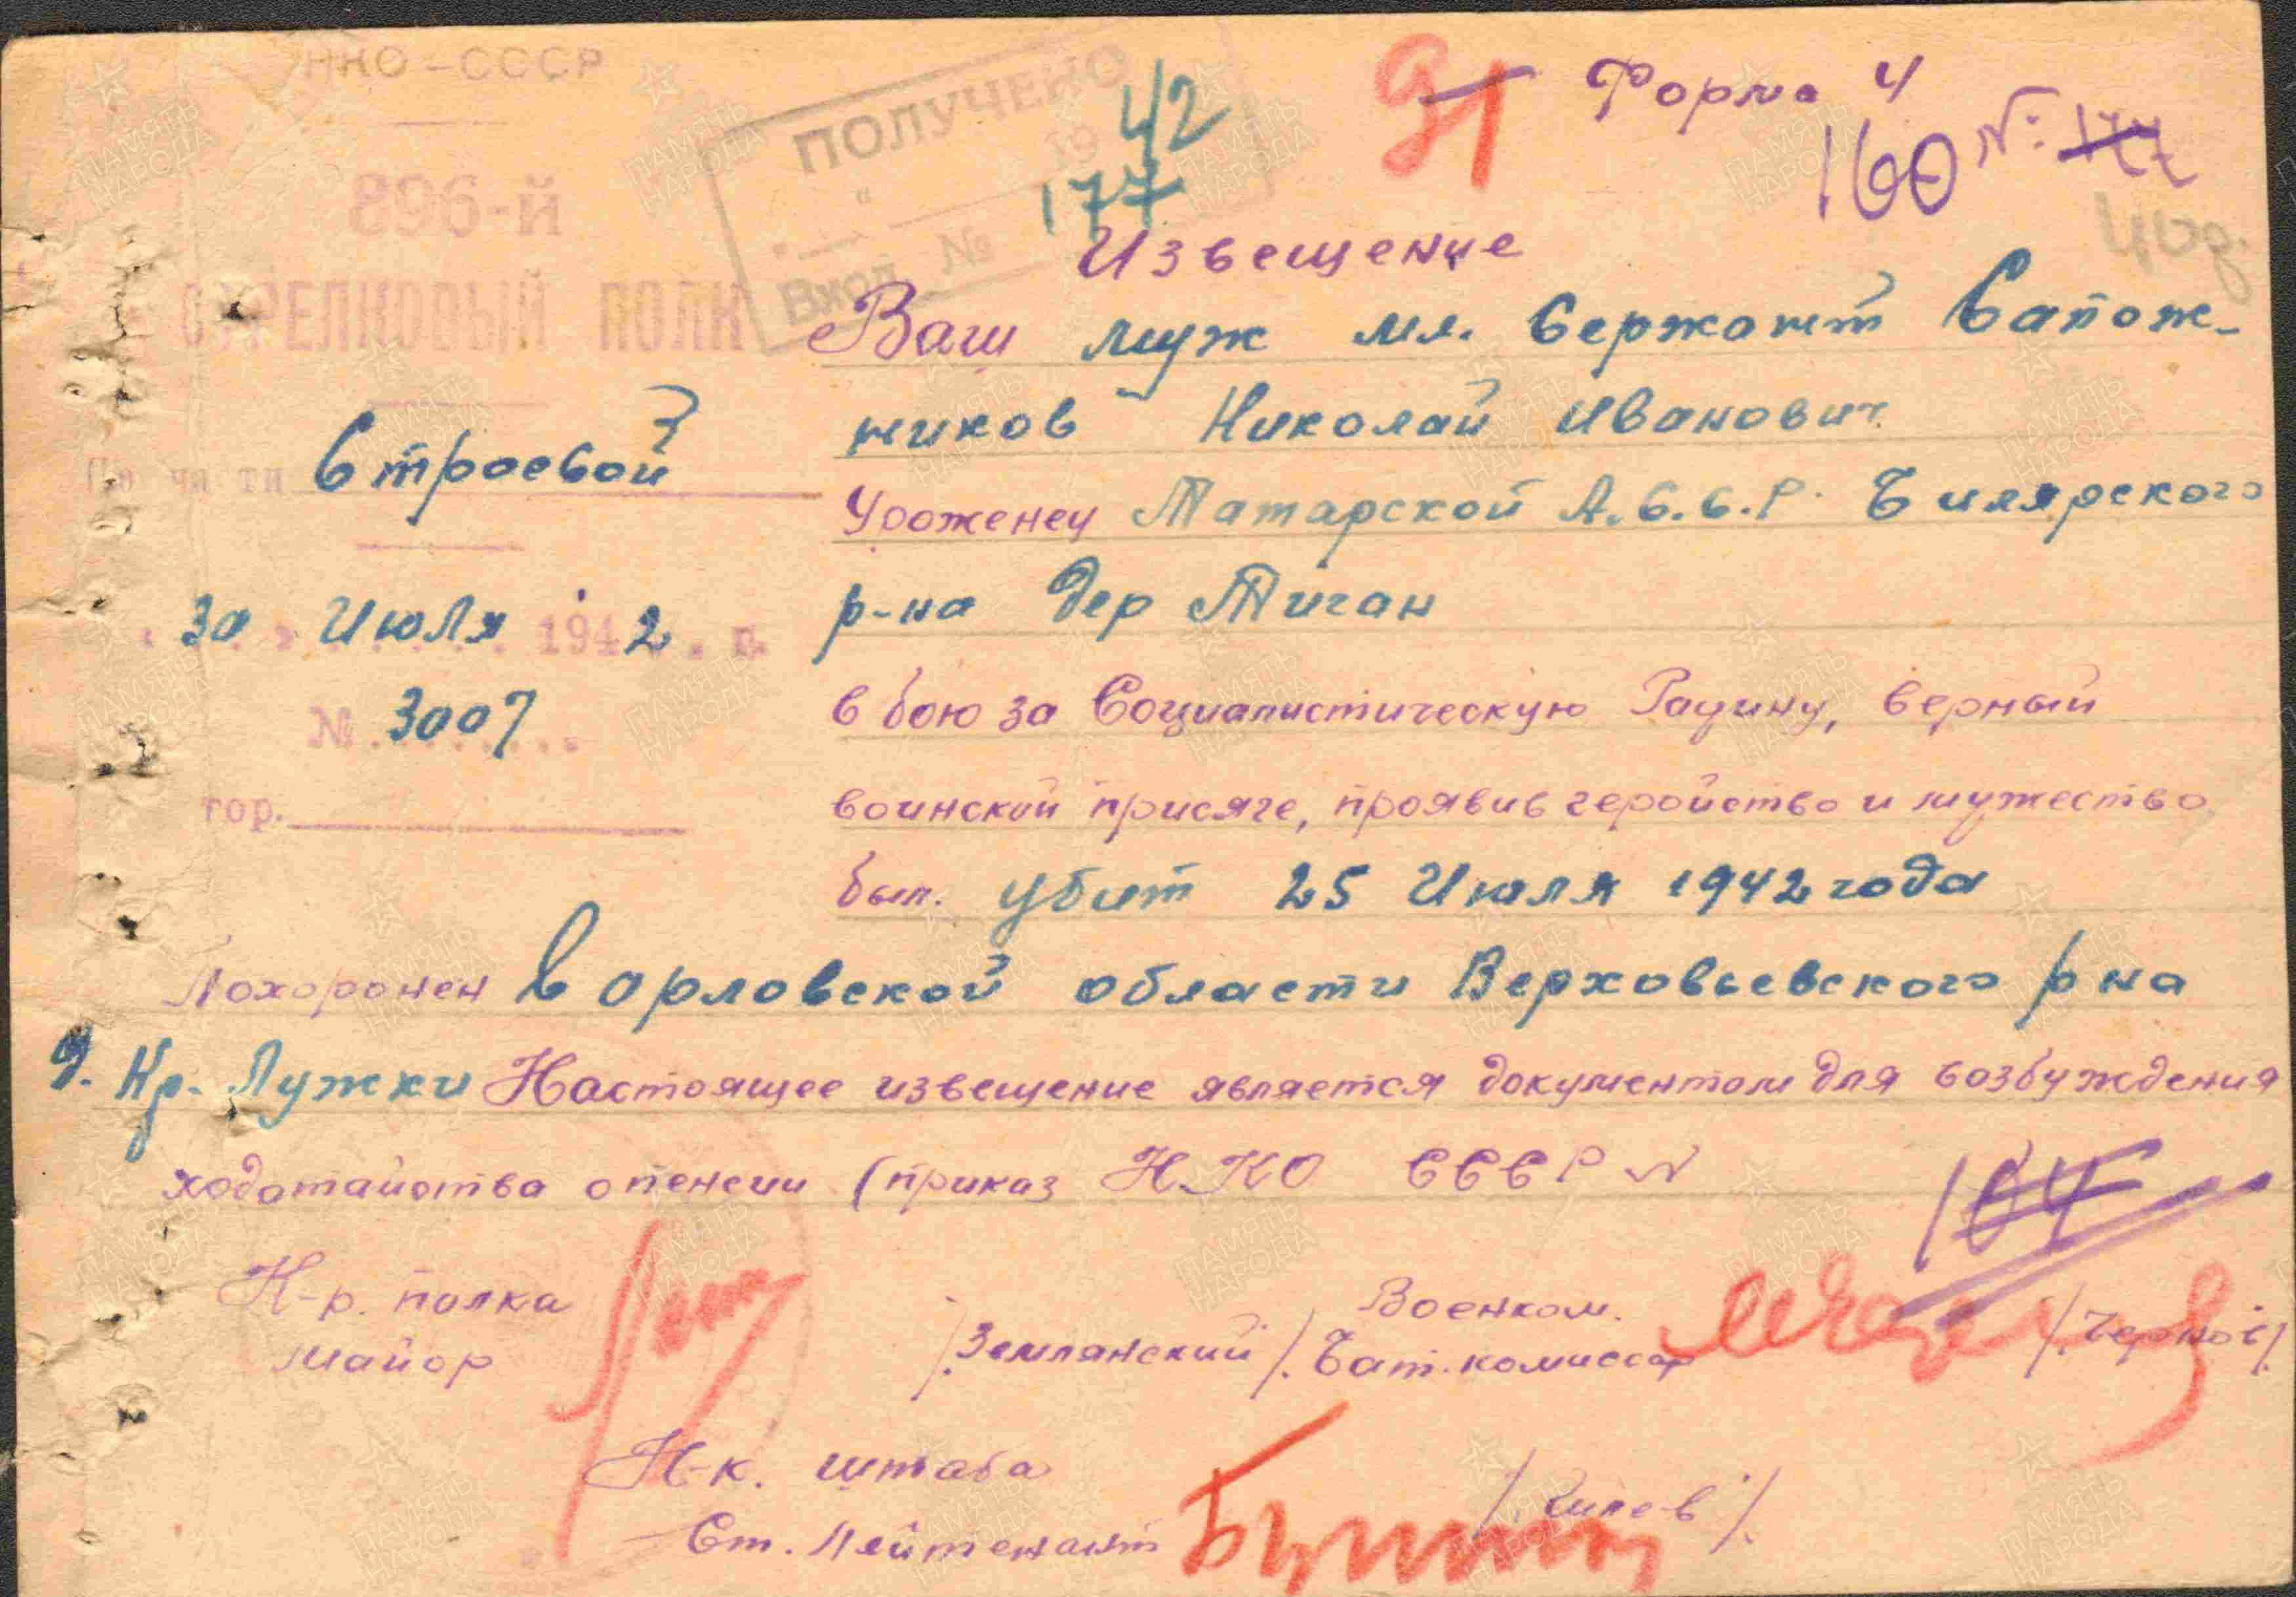 НКО-СССР
896-й
СТРЕЛКОВЫЙ ПОЛК
По части Строевой
30 Июля 1942 г.
№ 3007
гор.
ПОЛУЧЕНО
19 42
Вход. № 177
91
Форма 4
160 №: 177
Извещение
Ваш муж мл. Сержант Сапож-
ников Николай Иванович
Уроженец Татарской А.С.С.Р. Билярского
р-на дер Тиган
в бою за Социалистическую Радину, верный
воинской присяге, проявив геройство и мужество
был. убит 25 Июля 1942 года
Похоронен в орловской области Верховьевского р на
д. Кр. Лужки Настоящее извещение является документом для возбуждения
ходатайства о пенсии (приказ НКО СССР №
104
К-р. полка
Майор /Землянский/
Военком.
Бат. комиссар /Черной/
Н-к. штаба
Ст. Лейтенант
ПАМЯТЬ НАРОДА